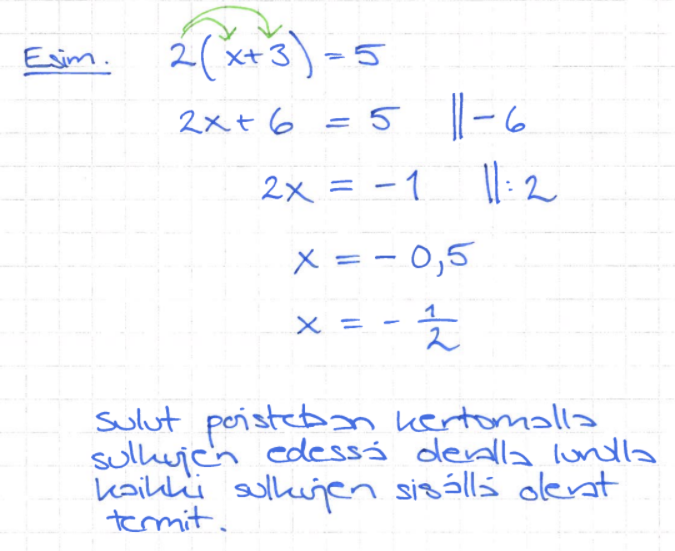 Esim. 2(x+3) = 5
2x + 6 = 5 ||-6
2x = -1 ||:2
x = -0,5
x = -1/2
Sulut poistetaan kertomalla
sulkujen edessä olevalla luvulla
kaikki sulkujen sisällä olevat
termit.